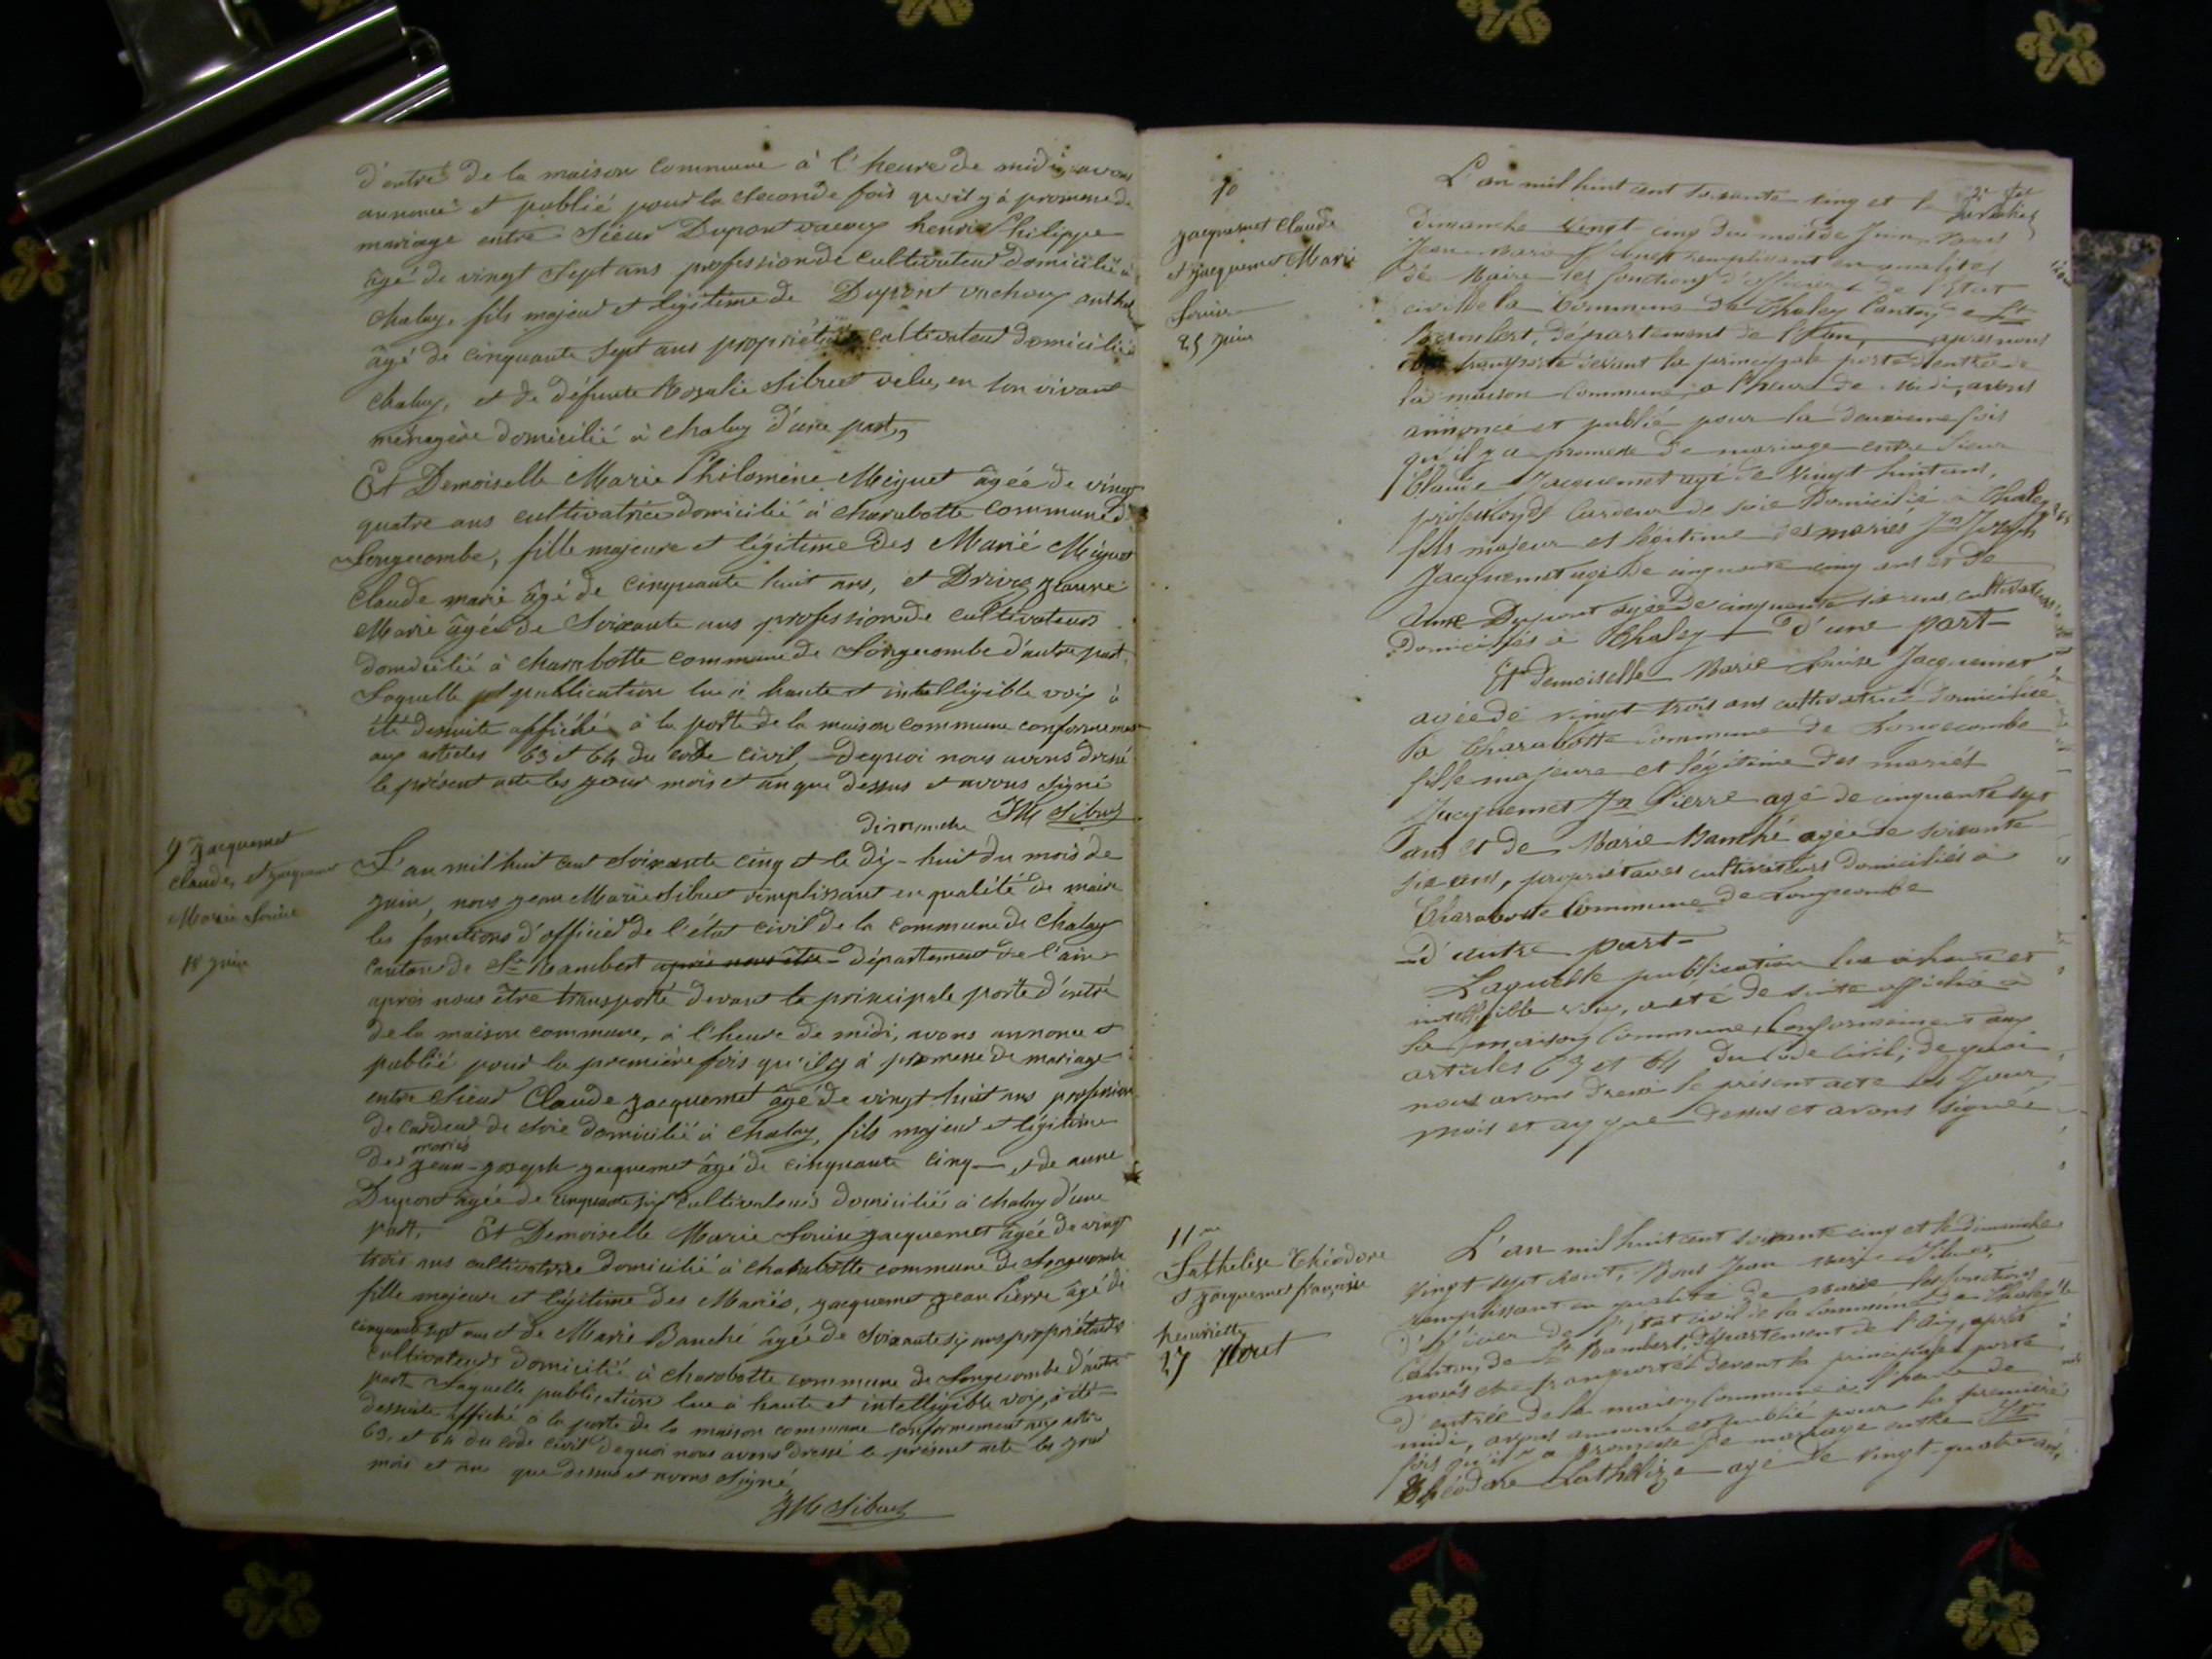 d'entré de la maison commune à l'heure de midi avons
annoncé et publié pour la seconde fois qu'il y à promesse de
mariage entre Sieur Dupont henri Philippe
âgé de vingt Sept ans profession de cultivateur domicilié à
chaley, fils majeur et légitime de Dupont
âgé de cinquante Sept ans propriétaire cultivateur domicilié
chaley, et de défunte Rosalie Sibuet en son vivant
ménagère domicilié à chaley d'une part,
Et Demoiselle Marie Philomène Miguet âgée de vingt
quatre ans cultivatrice domicilié à charabotte commune d
Longecombe, fille majeure et légitime des Marié Miguet
Claude marie âgé de cinquante huit ans, et jeanne
Marie âgée de Soixante ans profession de cultivateurs
domicilié à charabotte commune de Longecombe d'autre part.
Laquelle publication lue à haute et intelligible voix à
été desuite affiché à la porte de la maison commune conformement
aux articles 63 et 64 du code civil, Dequoi nous avons dressé
le présent acte les jour mois et an que dessus et avons signé
JM Sibuet
9 Jacquemet
Claude, et jacquemet
Marie Louise
18 juin
dimanche
L'an mil huit cent Soixante cinq et le dix-huit du mois de
juin, nous jean Marie Sibuet remplissant en qualité de maire
les fonctions d'officier de l'état civil de la commune de Chaley
canton de St Rambert après nous être département de l'ain
après nous être transporté devant la principale porte d'entré
de la maison commune, à l'heure de midi, avons annoncé et
publié pour la première fois qu'il y à promesse de mariage
entre Sieur Claude jacquemet âgé de vingt-huit ans profession
de cardeur de soie domicilié à chaley, fils majeur et légitime
mariés
des jean-joseph jacquemet âgé de cinquante cinq et de anne
Dupont âgée de cinquante six cultivateurs domiciliés à chaley d'une
part. Et Demoiselle Marie Louise jacquemet âgée de vingt
trois ans cultivatrice domicilié à charabotte commune de Longecombe
fille majeure et légitime des Mariés, jacquemet jean Pierre âgé de
cinquante sept ans et de Marie Banché âgée de Soixante six ans propriétaires
cultivateurs domicilié à charabotte commune de Longecombe d'autre
part Laquelle publication lue à haute et intelligible voix, à été
desuite affiché à la porte de la maison commune conformement aux
63, et 64 du code civil Dequoi nous avons dressé le présent acte les jour
mois et an que dessus et avons signé
JM Sibuet
10
jacquemet Claude
et jacquemet Marie
Louise
25 juin
L'an mil huit cent soixante cinq et le
dimanche vingt-cinq du mois de Juin, Nous
Jean Marie Sibuet remplissant en qualité
de Maire les fonctions d'officier de l'Etat
civil de la Commune de Chaley Canton de St
Rambert, département de l'Ain, après nous
être transporté devant la principale porte d'entrée de
la maison commune, à l'heure de midi, avons
annoncé et publié pour la deuxième fois
qu'il y a promesse de mariage entre Sieur
Claude Jacquemet agé de vingt huit ans,
profession de Cardeur de soie Domicilié à Chaley
fils majeur et légitime des mariés Jn Joseph
Jacquemet agé de cinquante cinq ans et de
Anne Dupont agée de cinquante six ans cultivateurs
Domiciliés à Chaley d'une part
Et Demoiselle Marie Louise Jacquemet
agée de vingt trois ans cultivatrice domiciliée
à Charabotte commune de Longecombe
fille majeure et légitime des mariés
Jacquemet Jn Pierre agé de cinquante sept
ans et de Marie Banché agée de soixante
six ans, propriétaires cultivateurs domiciliés à
Charabotte Commune de Longecombe
d'autre part
Laquelle publication lue à haute et
intelligible voix, a été de suite affichée à
la maison Commune, Conformément aux
articles 63 et 64 du Code Civil; de quoi
nous avons dressé le présent acte les Jour,
mois et an que dessus et avons signé
11me
Lathelize Théodore
et jacquemet françoise
henriette
27 Aout
L'an mil huit cent soixante cinq et le dimanche
vingt sept Aout, Nous Jean Marie Sibuet,
remplissant en qualité de Maire les fonctions
d'officier de l'Etat civil de la Commune de Chaley
Canton de St Rambert, département de l'Ain, après
nous être transporté devant la principale porte
d'entrée de la maison commune à l'heure de
midi, avons annoncé et publié pour la première
fois qu'il y a promesse de mariage entre Sr
Théodore Lathelize agé de vingt-quatre ans,